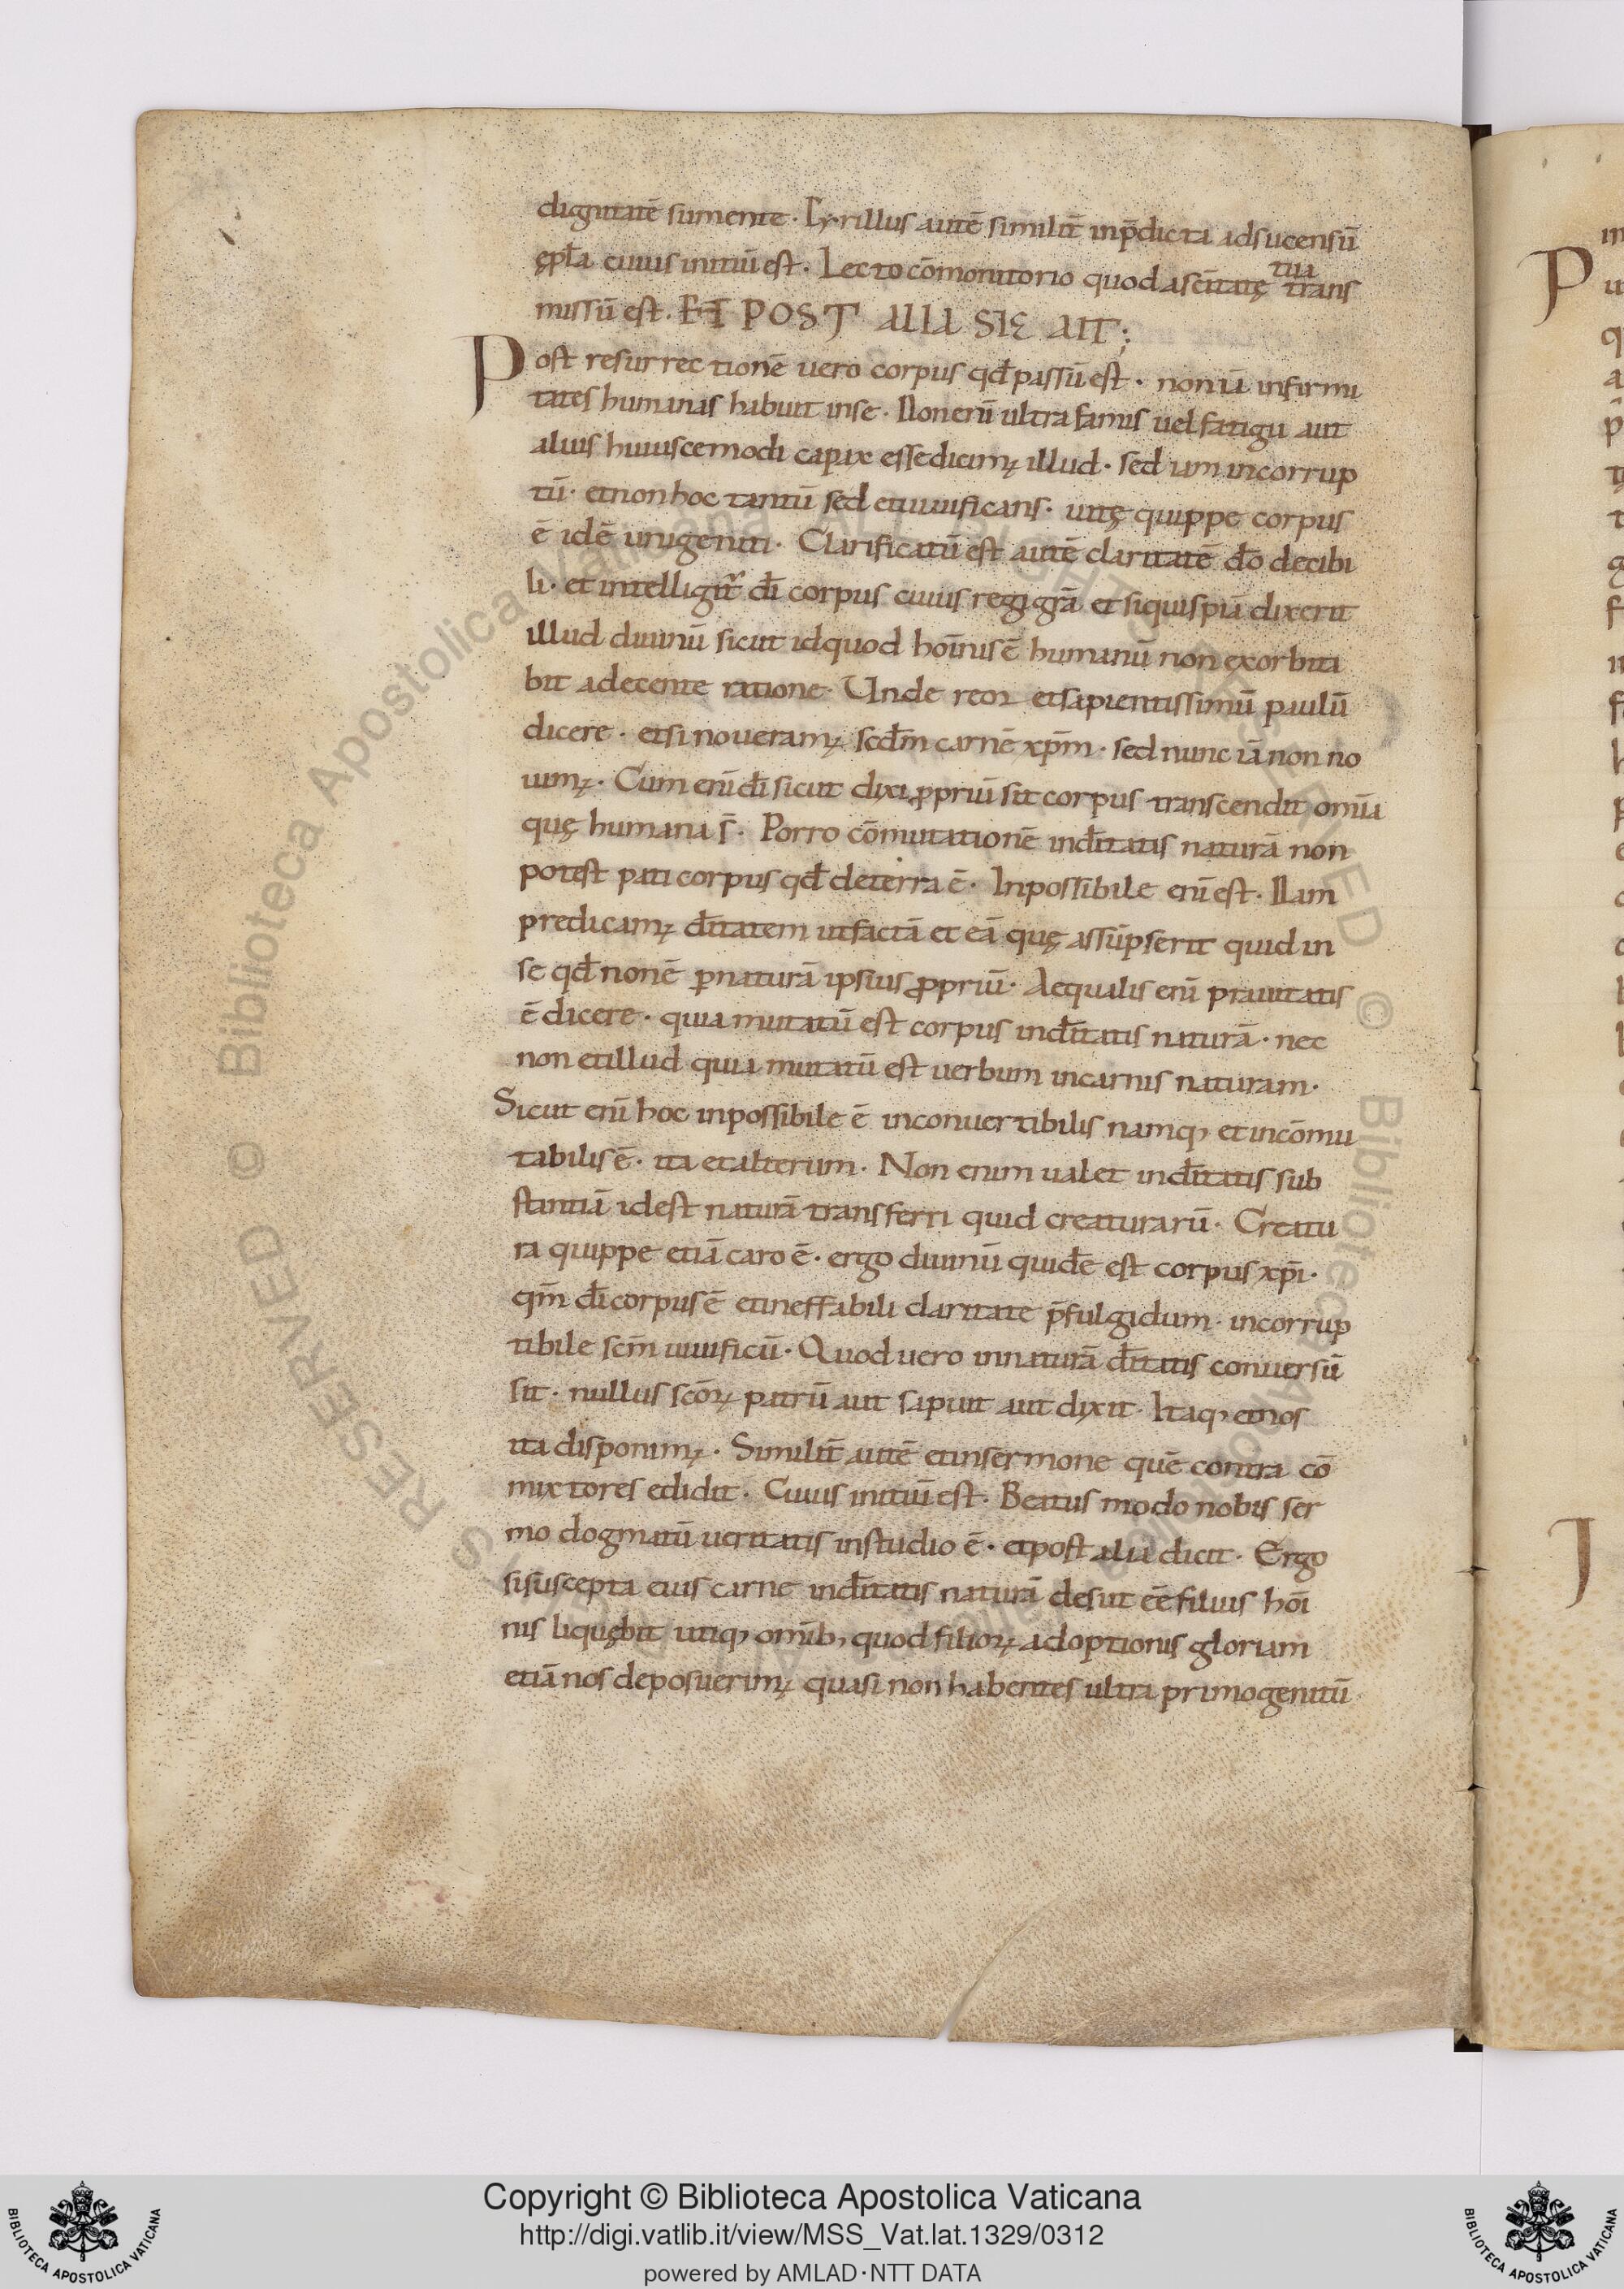 dignitatē sumente. Cyrillus autē similit̄ inp̄dicta adsucensū
ępt̄a cuius initiū est. Lecto cōmonitorio quod ascītatę tua trans
missū est. ET POST ALIA SIC AIT;
Post resurrectionē uero corpus qd̄ passū est. non iā infirmi
tates humanas habuit inse. Non enī ultra famis uel fatigū aut
alius huiuscemodi capax esse dicimꝰ illud. sed iam incorrup
tū. et non hoc tantū sed et uiuificans. uitę quippe corpus
ē idē unigeniti. Clarificatū est autē claritatē dō decibi
li. et intelligit̄ dī corpus cuius regi grā et siquispiā dixerit
illud diuinū sicut id quod hoīnis ē humanū non exorbita
bit adecente ratione. Unde reor et sapientissimū paulū
dicere. etsi noueramꝰ scdm̄ carnē xp̄m. sed nunc iā non no
uimꝰ. Cum enī dī sicut dixi ꝓpriū sit corpus transcendit omīa
quę humana s̄. Porro cōmutationē indītatis naturā non
potest pati corpus qd̄ deterra ē. Inpossibile enī est. Nam
predicamꝰ dītatem utfactā et eā quę assūpserit quid in
se qd̄ non ē ꝑnaturā ipsius ꝓpriū. Aequalis enī prauitatis
ē dicere. quia mutatū est corpus indītatis naturā. nec
non et illud quia mutatū est uerbum incarnis naturam.
Sicut enī hoc inpossibile ē inconuertibilis namq; et incōmu
tabilis ē. ita et alterum. Non enim ualet indītatis sub
stantiā id est naturā transferri quid creaturarū. Creatu
ra quippe etiā caro ē. ergo diuinū quidē est corpus xp̄i.
qm̄ dī corpus ē et ineffabili claritate p̄fulgidum. incorrup
tibile scm̄ uiuificū. Quod uero innaturā dītatis conuersū
sit. nullus scōꝝ patrū aut sapuit aut dixit. Itaq; et nos
ita disponimꝰ. Similit̄ autē et insermone quē contra cō
mixtores edidit. Cuius initiū est. Beatus modo nobis ser
mo dogmatū ueritatis instudio ē. et post alia dicit. Ergo
si suscepta eius carne indītatis naturā desiit eē filius hoī
nis liquębit utiq; omīb; quod filioꝝ adoptionis gloriam
etiā nos deposuerimꝰ quasi non habentes ultra primogenitū
Copyright © Biblioteca Apostolica Vaticana
http://digi.vatlib.it/view/MSS_Vat.lat.1329/0312
powered by AMLAD·NTT DATA
BIBLIOTECA APOSTOLICA VATICANA
BIBLIOTECA APOSTOLICA VATICANA